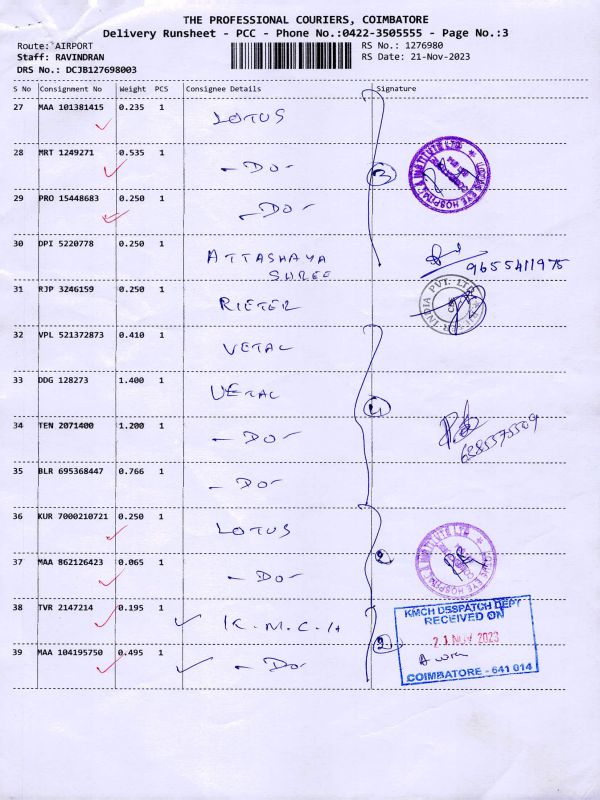 THE PROFESSIONAL COURIERS, COIMBATORE
Delivery Runsheet - PCC - Phone No.:0422-3505555 - Page No.:3
Route: AIRPORT RS No.: 1276980
Staff: RAVINDRAN RS Date: 21-Nov-2023
DRS No.: DCJB127698003
S No Consignment No Weight PCS Consignee Details Signature
27 MAA 101381415 0.235 1 LOTUS
28 MRT 1249271 0.535 1 - DO - 3
LOTUS EYE HOSPITAL & INSTITUTE LTD
29 PRO 15448683 0.250 1 - DO -
30 DPI 5220778 0.250 1 ATTASHAYA
SHREE 9655411975
31 RJP 3246159 0.250 1 RIETER
INDIA PVT. LTD
32 VPL 521372873 0.410 1 VETAL
33 DDG 128273 1.400 1 VETAL 4
34 TEN 2071400 1.200 1 - DO -
6285575509
35 BLR 695368447 0.766 1 - DO -
36 KUR 7000210721 0.250 1 LOTUS 2
LOTUS EYE HOSPITAL & INSTITUTE LTD
37 MAA 862126423 0.065 1 - DO -
38 TVR 2147214 0.195 1 K.M.C.H
KMCH DESPATCH DEPT
RECEIVED ON
21 NOV 2023
39 MAA 104195750 0.495 1 - DO - 2
COIMBATORE - 641 014